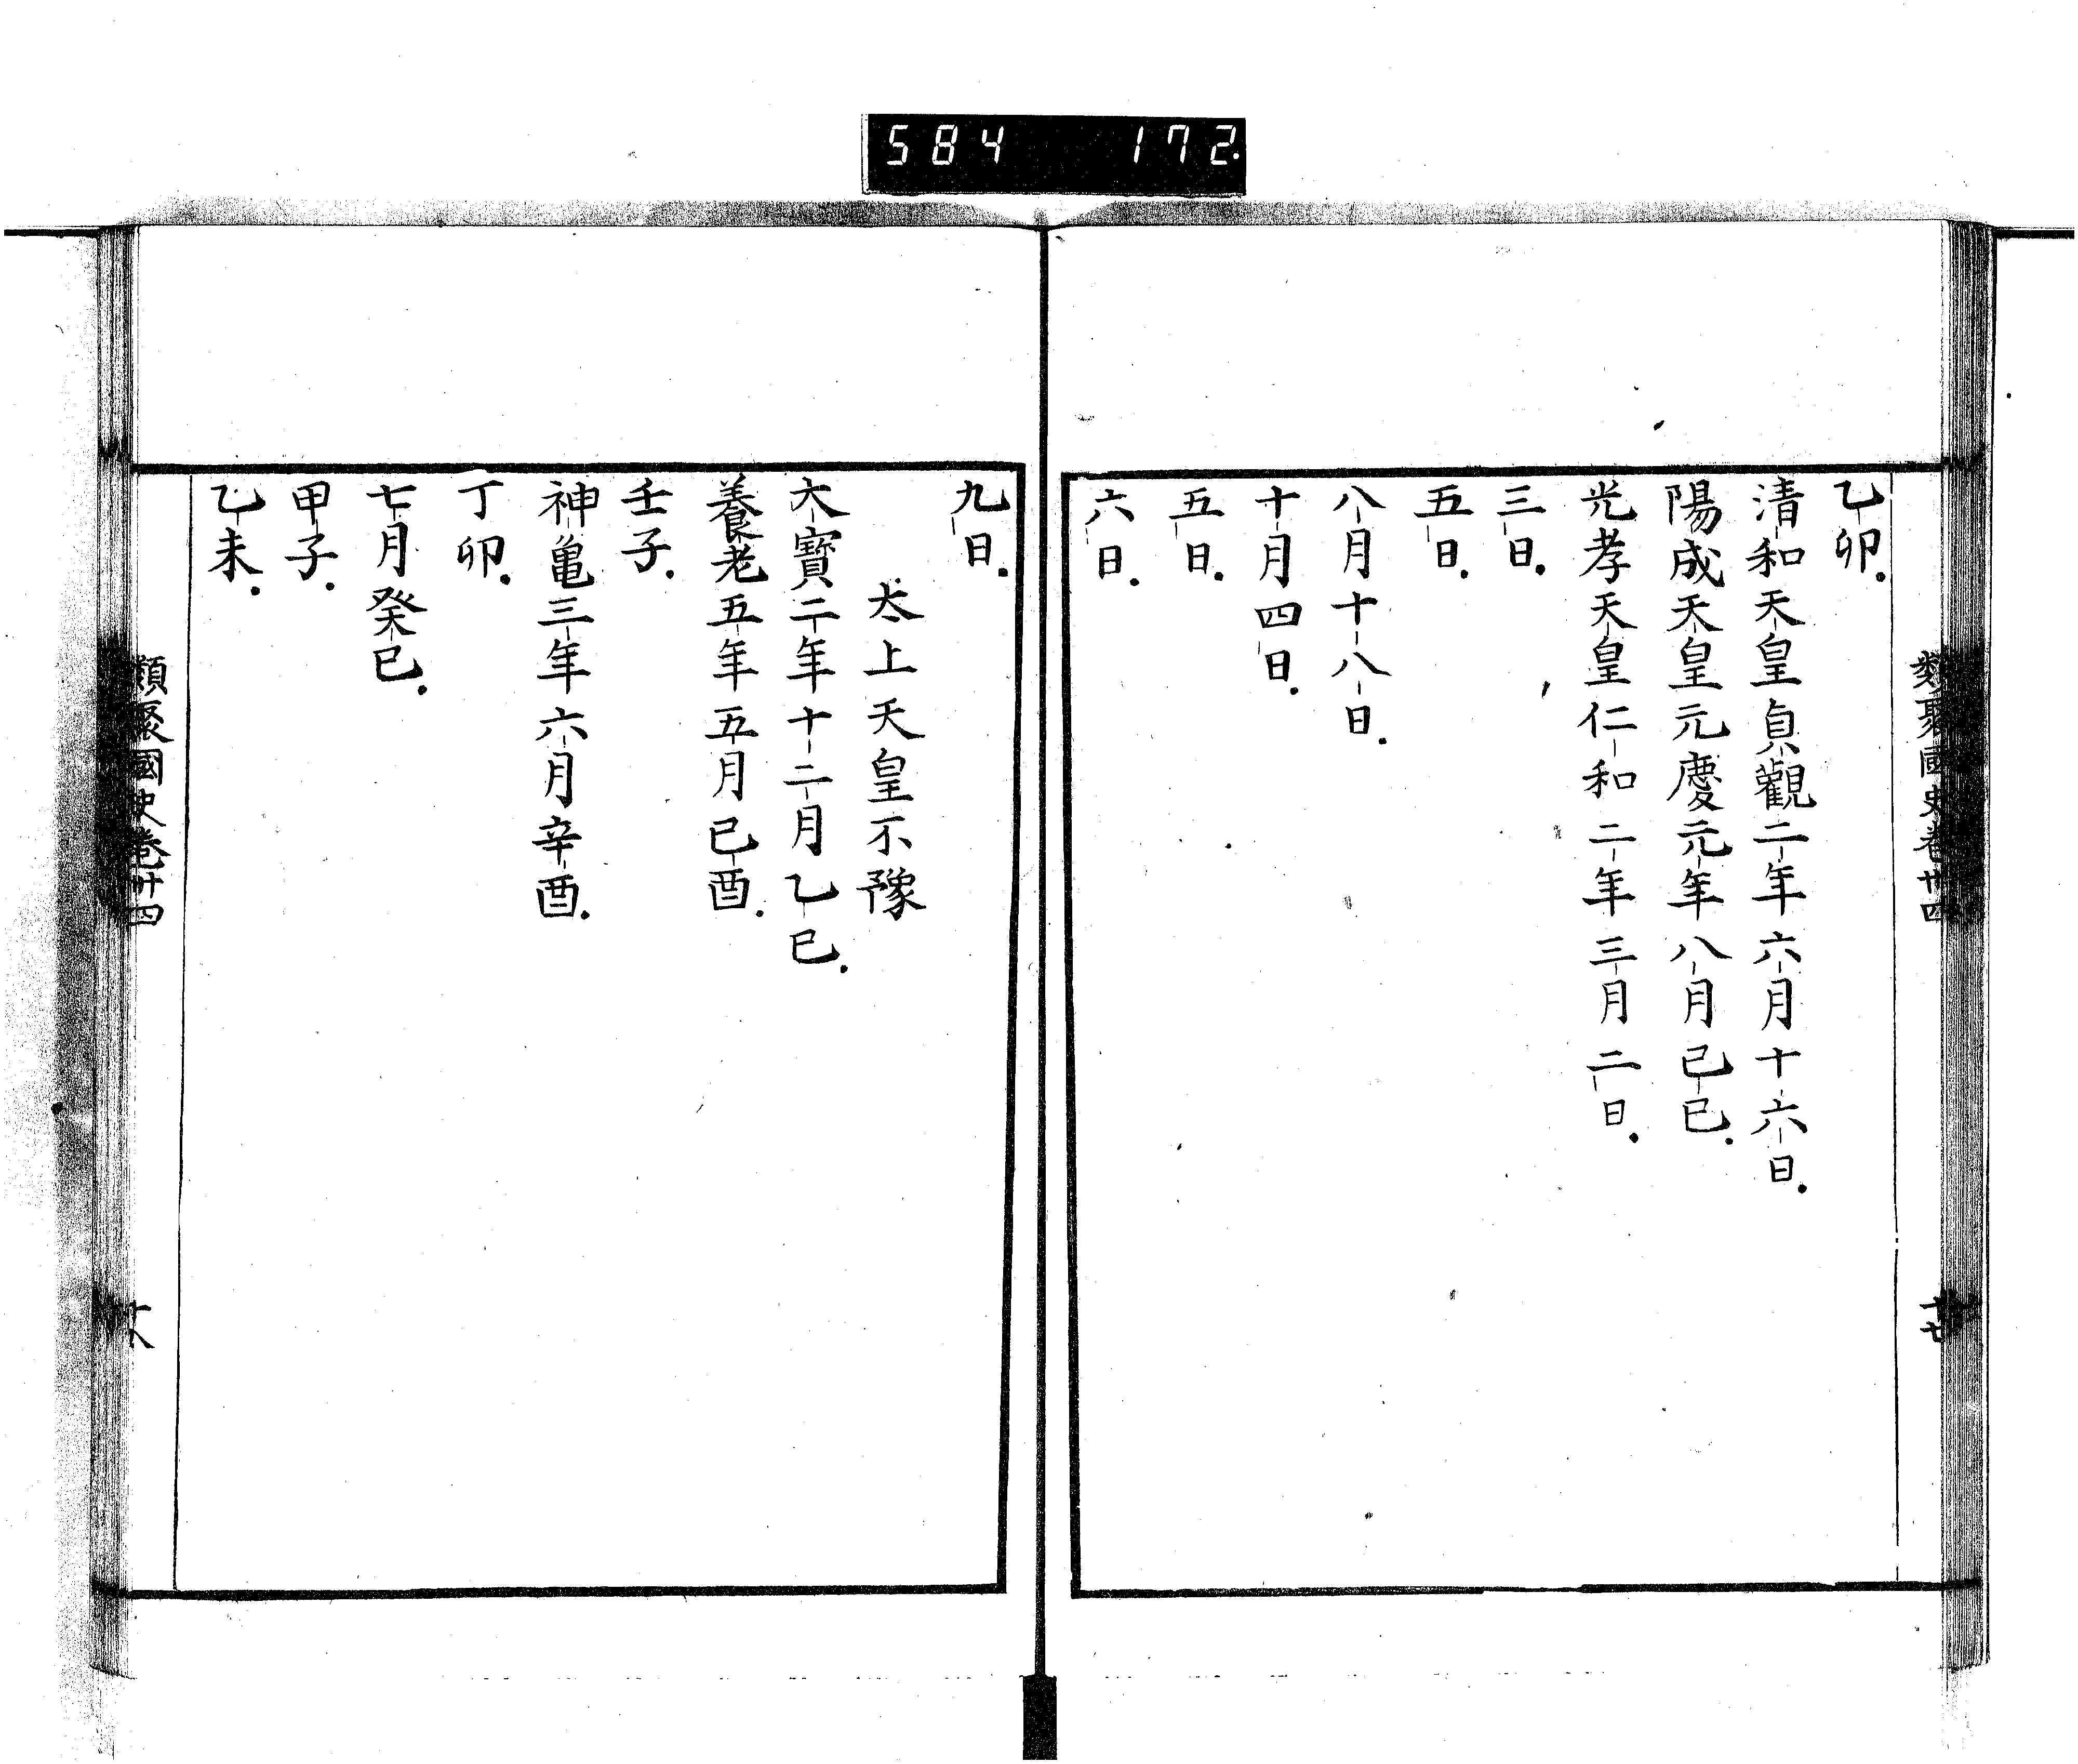 584 172.
類聚國史卷卅四
十七
乙卯.
清和天皇貞觀二年六月十六日.
陽成天皇元慶元年八月己巳.
光孝天皇仁和二年三月二日.
三日.
五日.
八月十八日.
十月四日.
五日.
六日.
九日.
太上天皇不豫
大寶二年十二月乙巳.
養老五年五月己酉.
壬子.
神亀三年六月辛酉.
丁卯.
七月癸巳.
甲子.
乙未.
類聚國史卷卅四
十八